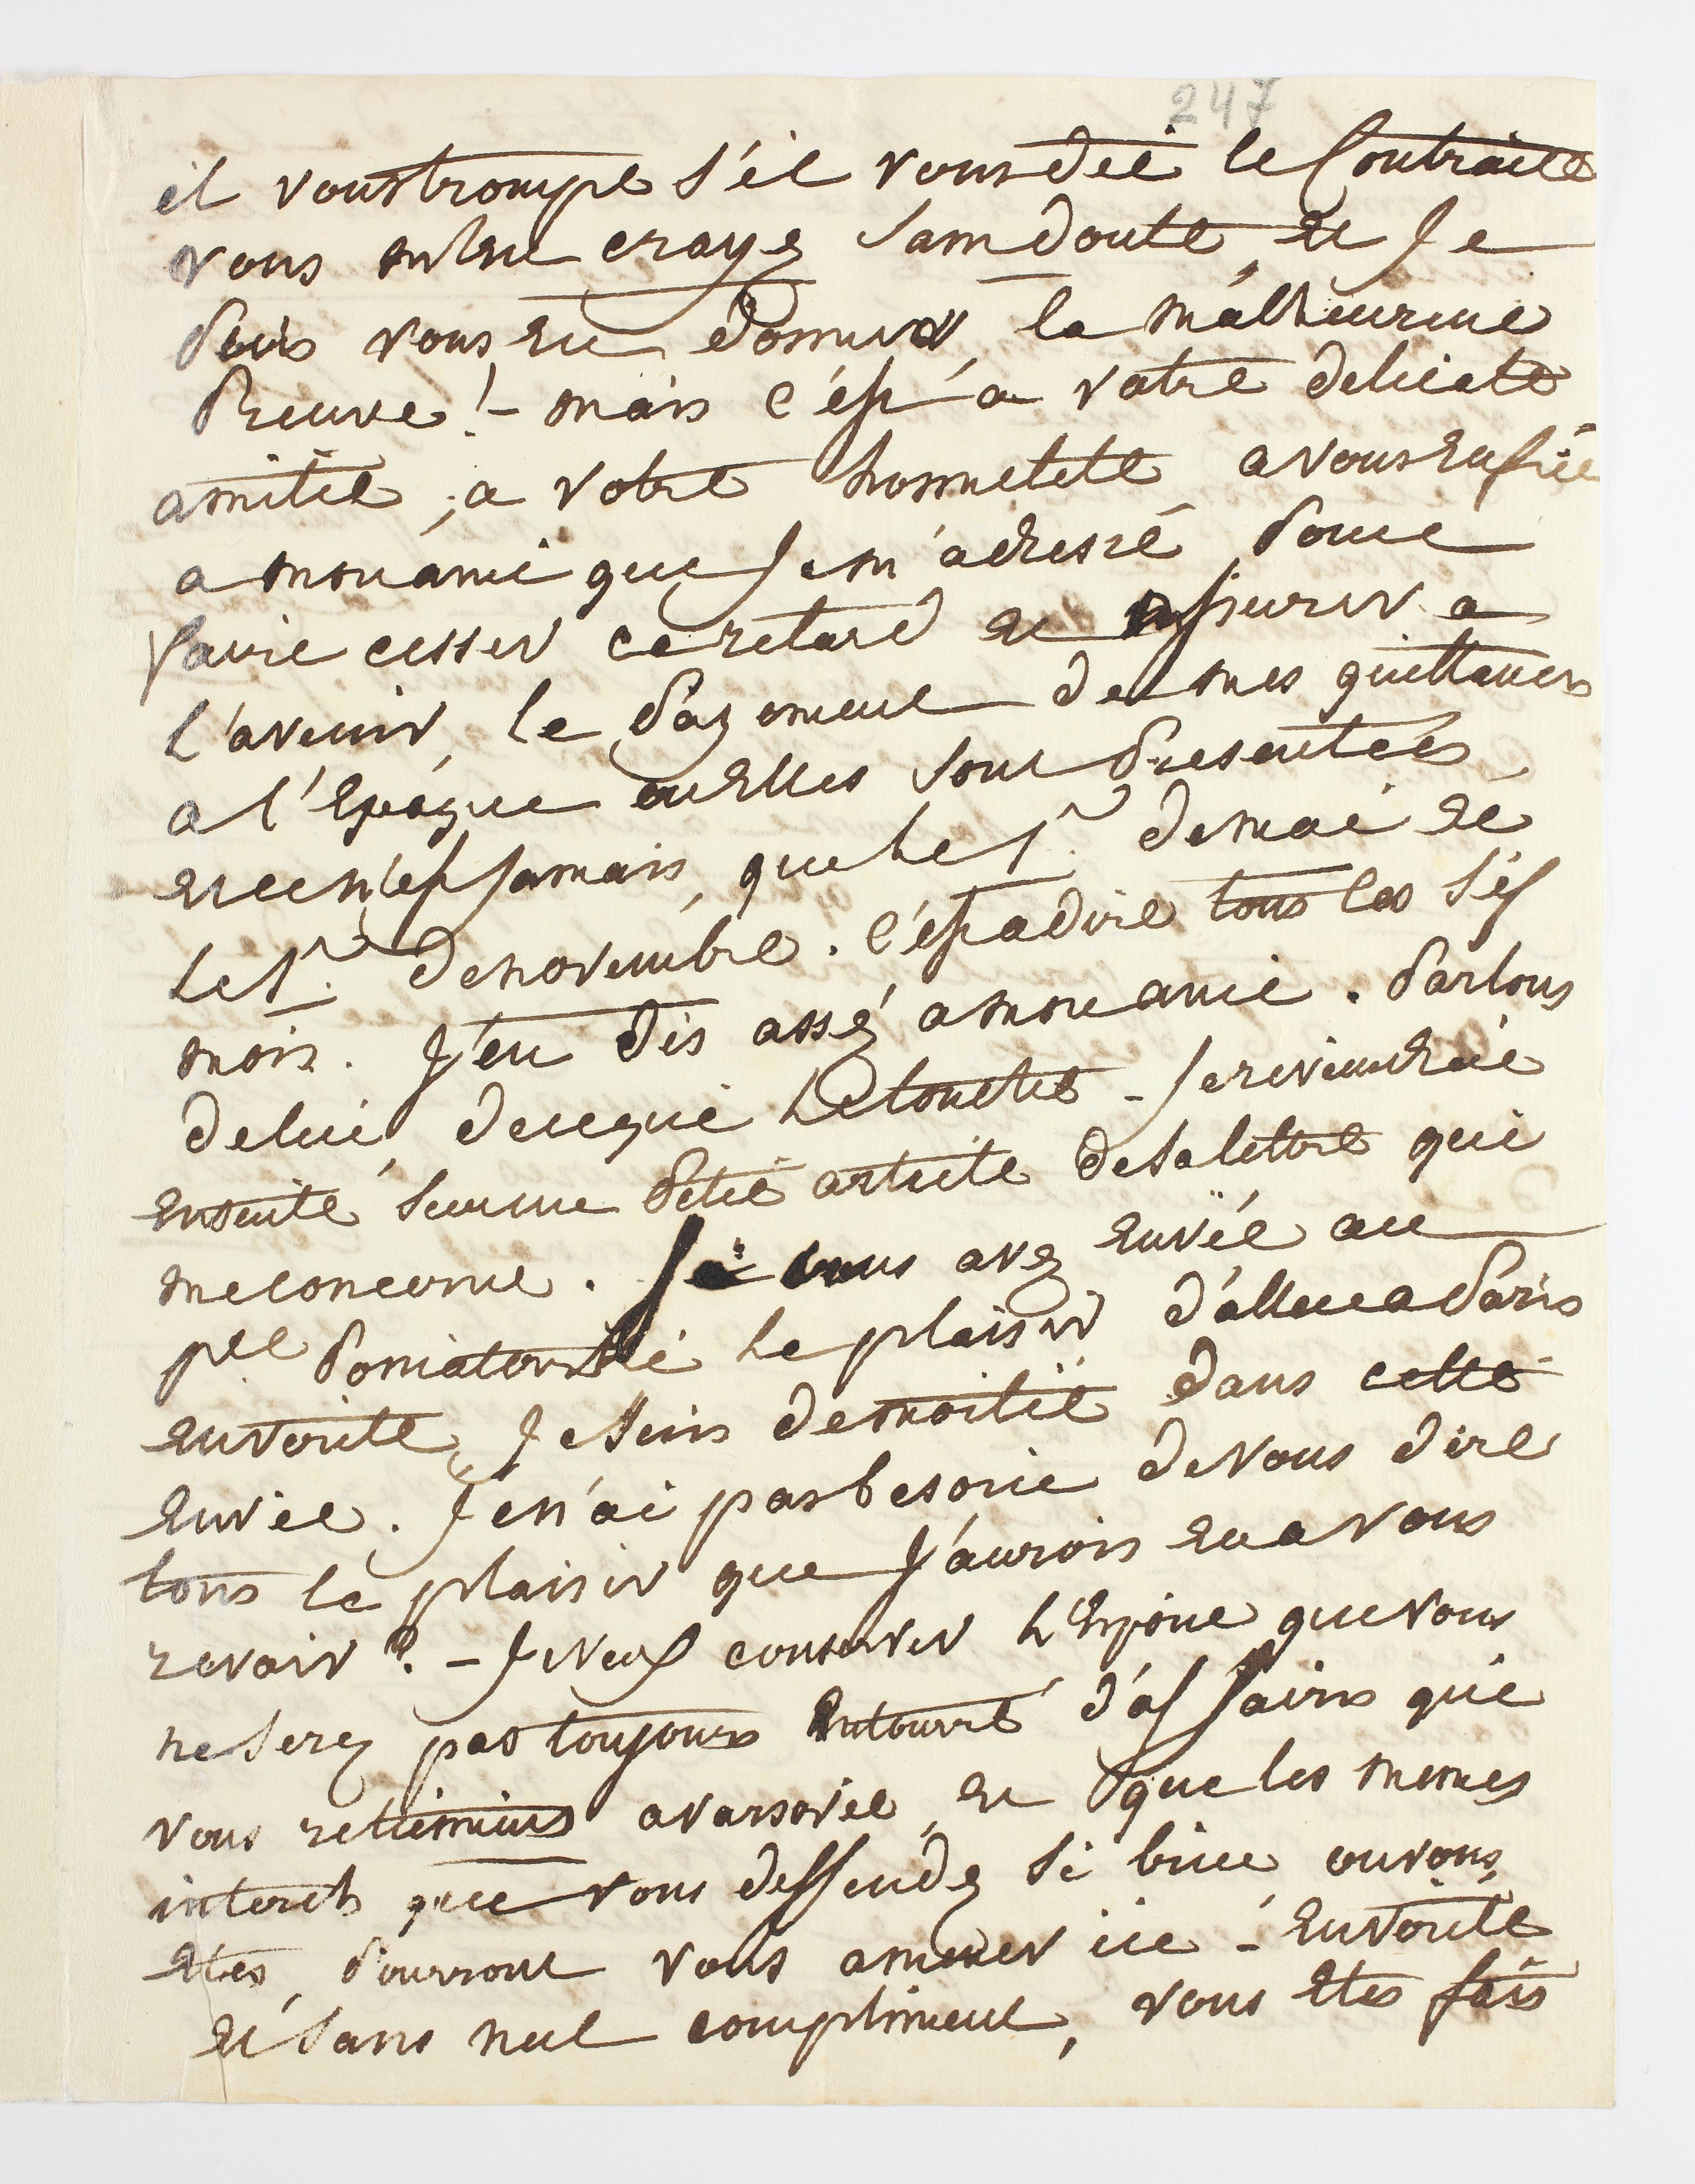 247
il voustrompe s'il vousdit le Contraire
vous m'en croyez sansdoute, et Je
puis vous en donner la malheureuse
Preuve! - mais c'est a votre delicate
amitié, a votre honnetete a vous enfin
a monami que Je m'adresse pour
faire cesser ce retard et assurer a
l'avenir, le payement de mes quittances
a l'Epoque ou elles sont Presentées,
et ce n'est Jamais, que le 1er de mai et
le 1er de novembre. c'est a dire tous les six
mois. J'en dis assé a mon ami. Parlons
de lui, de ce qui le touche - Je reviendrai
ensuite sur un petit article de sa lettre qui
me concerne. Si vous avez envië au
pce Poniatowski le plaisir d'aller a Paris
en verité, Je suis de moitié dans cette
envie. Je n'ai pas besoin de vous dire
tous le plaisir que J'aurois eu a vous
revoir? - Je veux conserver l'Espoir que vous
ne serez pas toujours entourré d'affaires qui
vous retiennent a varsovie, et que les memes
interets que vous deffendez si bien ou vous
etes, Pourront vous amener ici - en verité
et sans nul compliment, vous etes fais